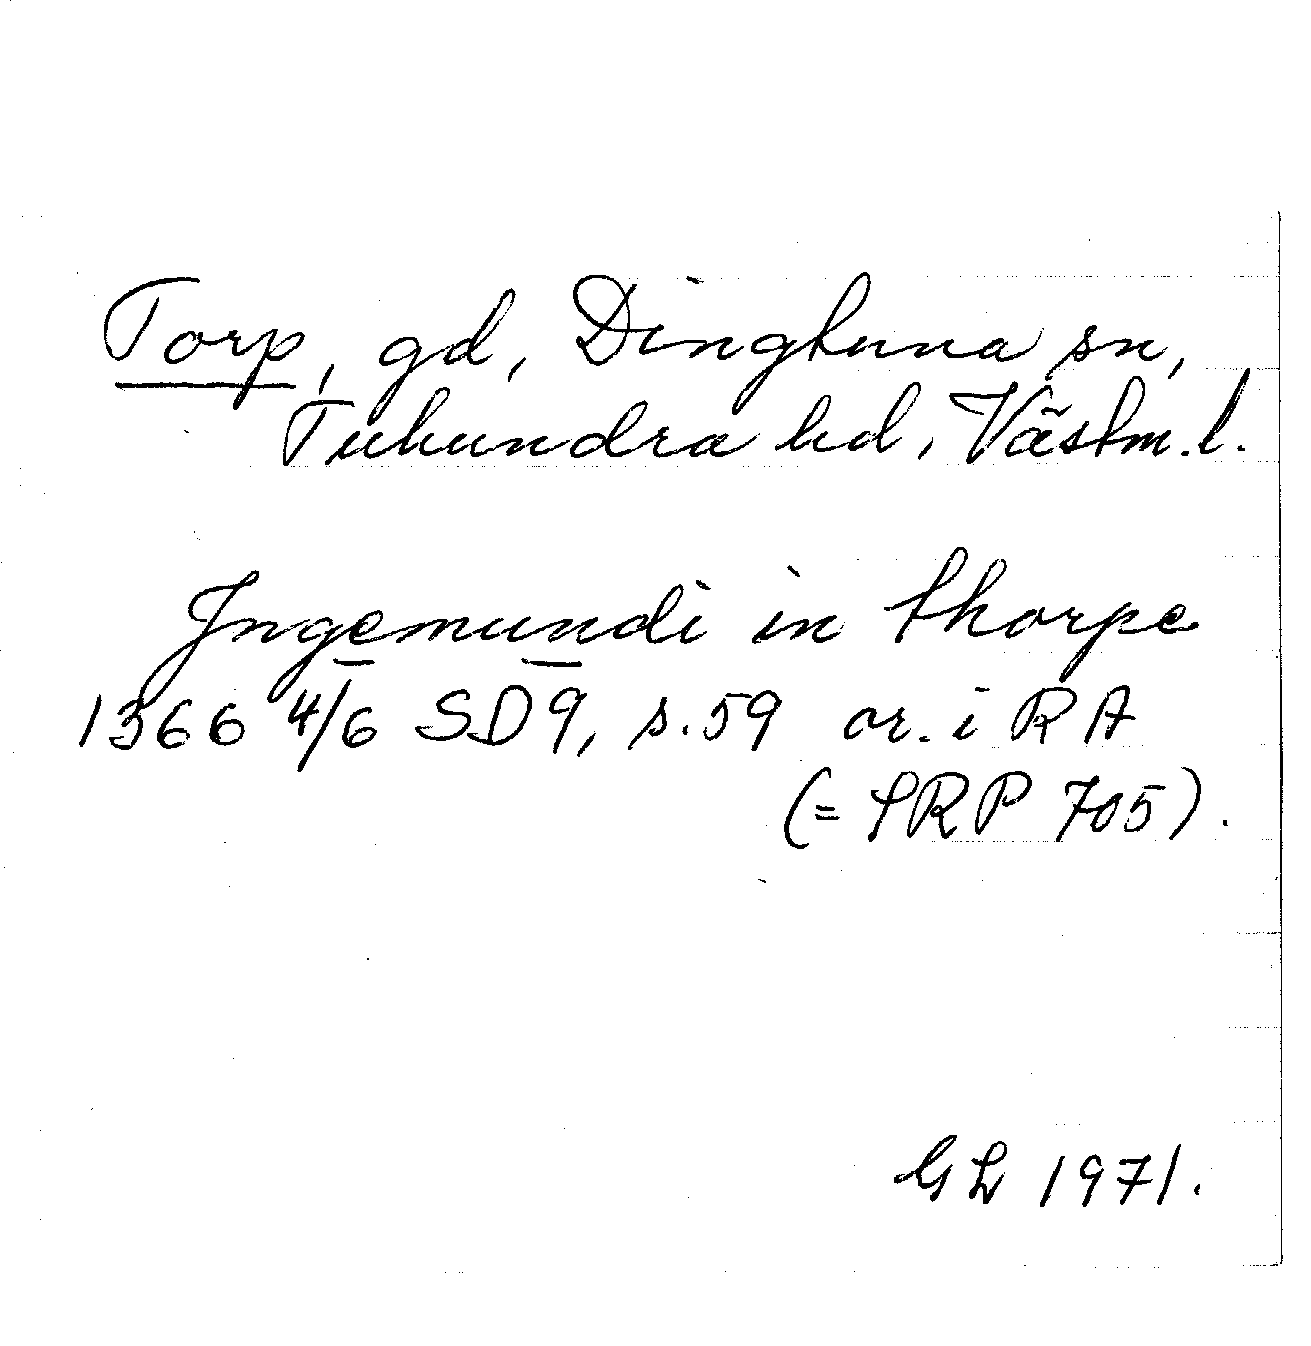 Torp, gd, Dingtuna sn,
Tuhundra hd, Västm.l.
Jngemundi in thorpe
1366 4/6 SD9, s.59 or. i RA
(= SRP 705).
GL 1971.